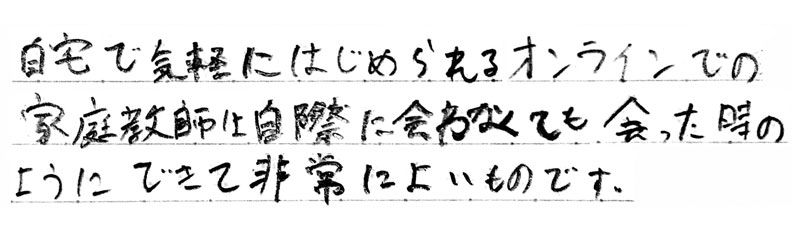 自宅で気軽にはじめられるオンラインでの
家庭教師は自際に会わなくても会った時の
ようにできて非常によいものです。